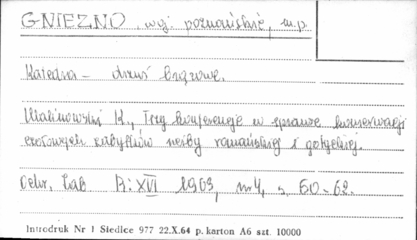 GNIEZNO, woj. poznańskie, m.p.
Katedra - drzwi brązowe.
Malinowski K., Trzy konferencje w sprawie konserwacji
czołowych zabytków rzeźby romańskiej i gotyckiej.
Ochr. Zab. R: XVI 1963, nr 4, s. 60-62.
Introdruk Nr 1 Siedlce 977 22.X.64 p. karton A6 szt. 10000